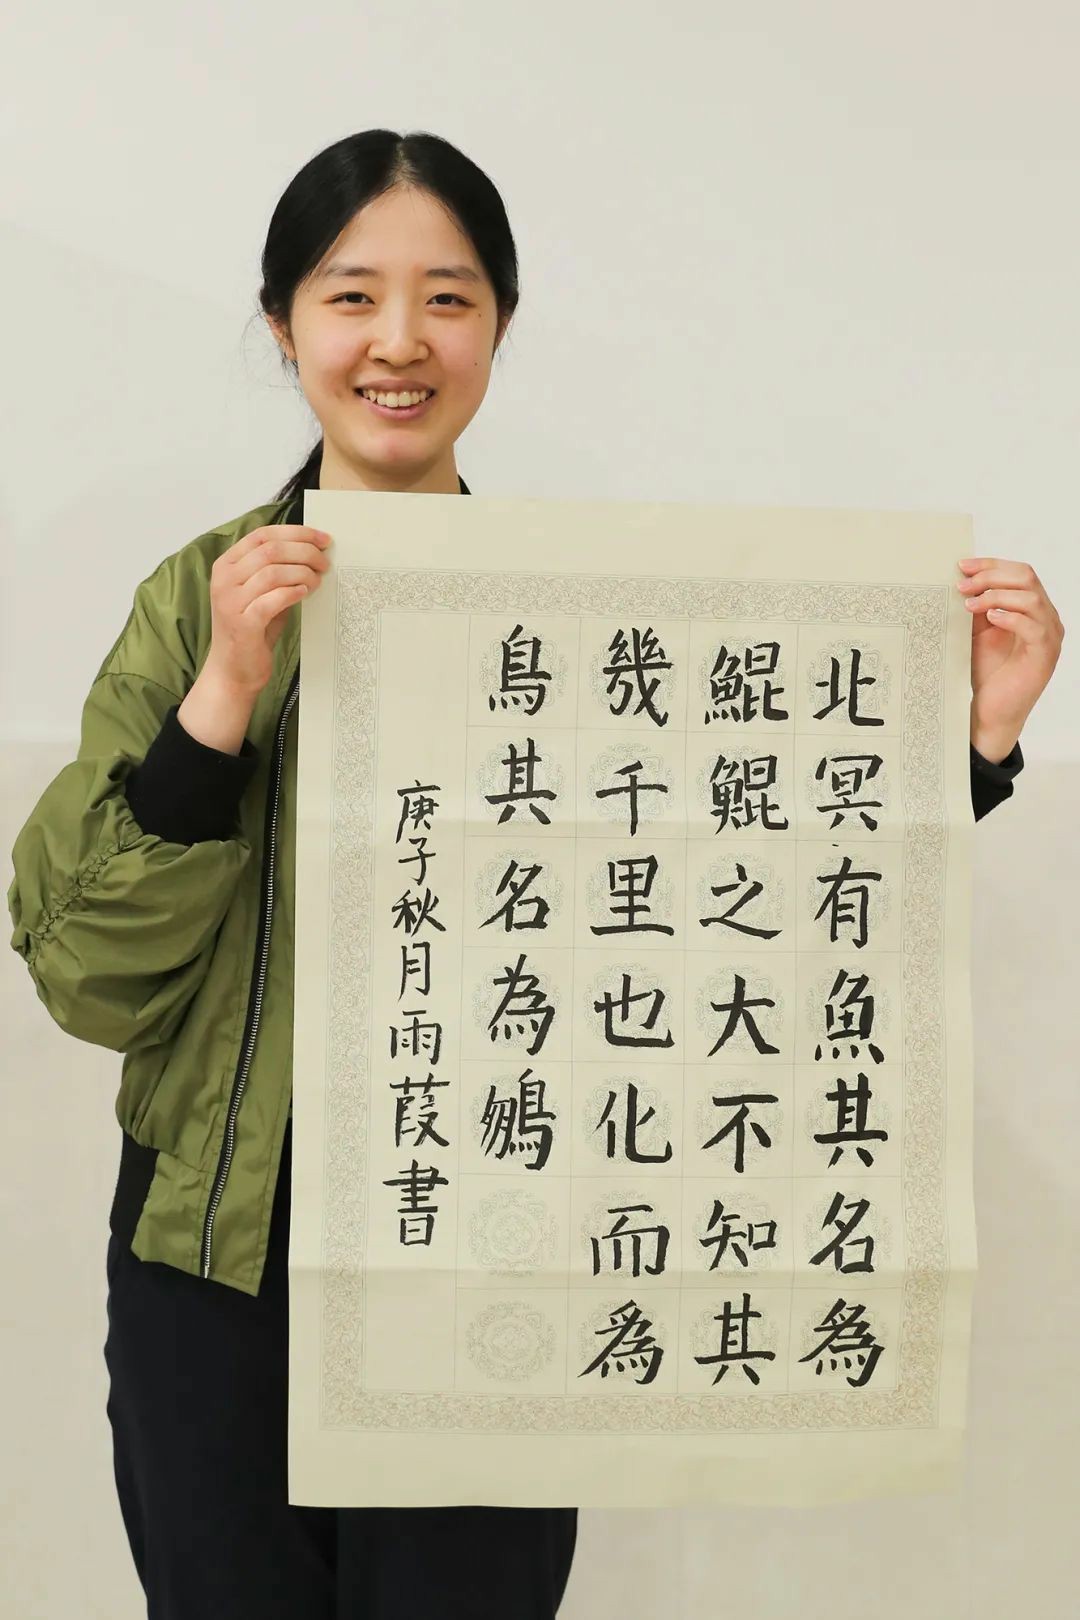 北冥有魚其名為
鯤鯤之大不知其
幾千里也化而為
鳥其名為鵷
庚子秋月雨葭書